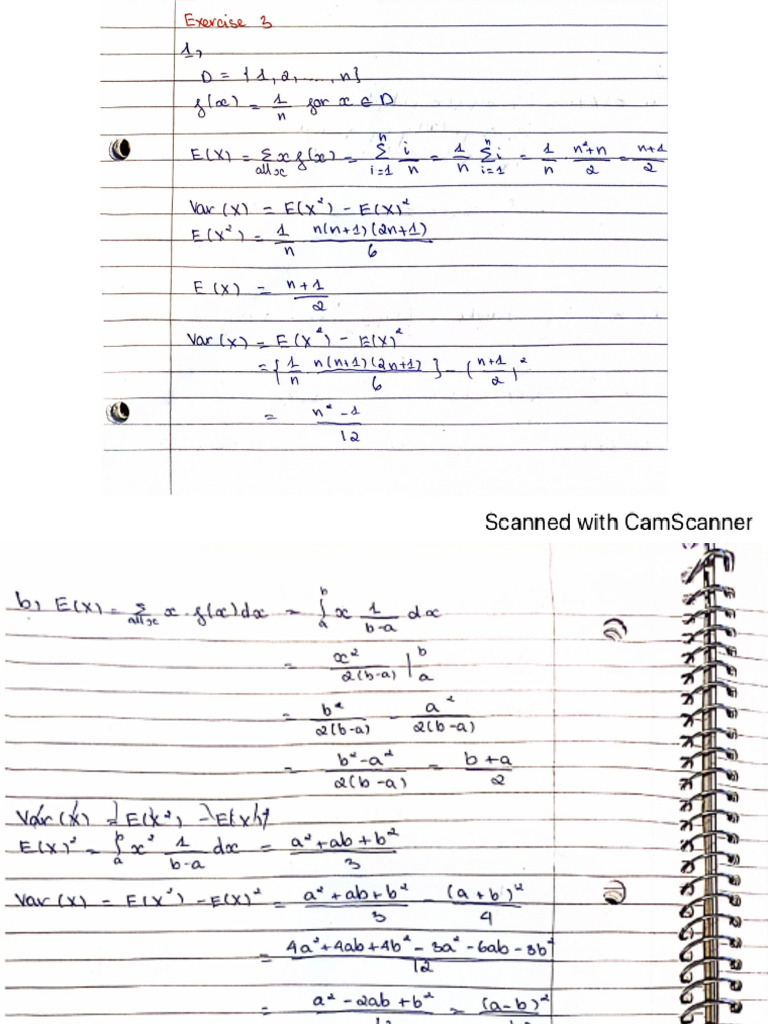 Exercise 3
1,
D = {1, 2, ...., n}
f(x) = 1/n for x ∈ D
E(X) = Σ_{all x} x f(x) = Σ_{i=1}^{n} i/n = 1/n Σ_{i=1}^{n} i = 1/n · (n²+n)/2 = (n+1)/2
Var(X) = E(X²) – E(X)²
E(X²) = 1/n n(n+1)(2n+1)/6
E(X) = (n+1)/2
Var(X) = E(X²) – E(X)²
= {1/n n(n+1)(2n+1)/6} – (n+1/2)²
= (n² - 1)/12
Scanned with CamScanner
b, E(X) = Σ_{all x} x · f(x) dx = ∫_a^b x 1/(b-a) dx
= x²/2(b-a) |_a^b
= b²/2(b-a) – a²/2(b-a)
= (b²-a²)/2(b-a) = (b+a)/2
Var(X) = E(X²) – E(X)²
E(X)² = ∫_a^b x² 1/(b-a) dx = (a²+ab+b²)/3
Var(X) = E(X²) – E(X)² = (a²+ab+b²)/3 – (a+b)²/4
= (4a²+4ab+4b² – 3a² – 6ab – 3b²)/12
= (a² – 2ab + b²)/12 = (a-b)²/12